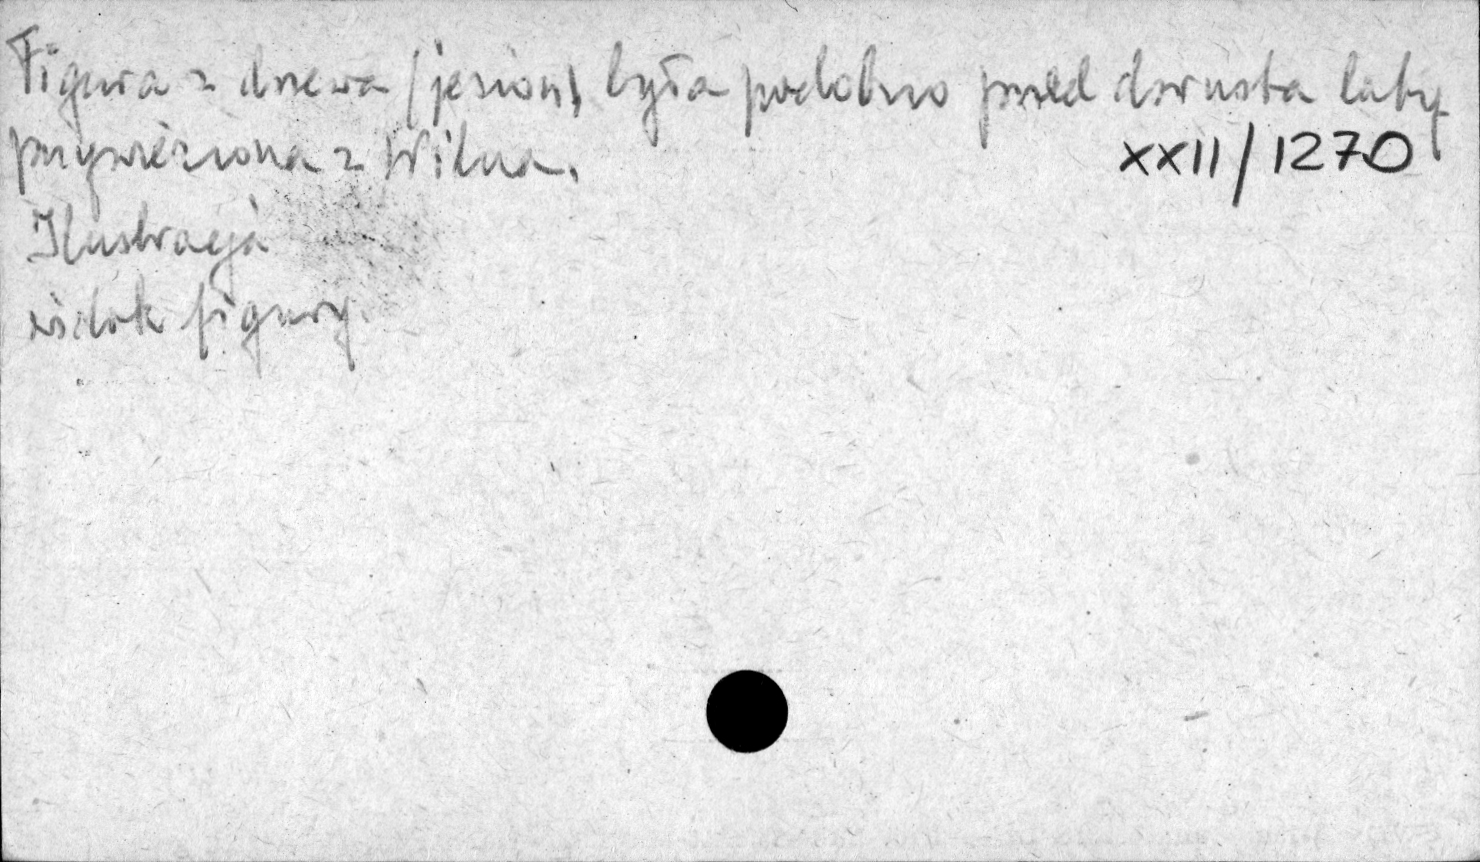 Figura z drzewa /jesion/ była podobno przed dwustu laty
przywieziona z Wilna. XXII/1270
Ilustracja
widok figury.